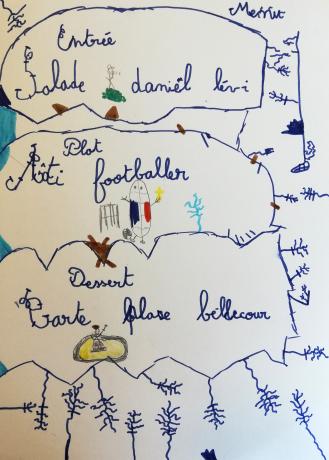 Menu
Entrée
Salade daniël lévi
Plat
Rôti footballer
Dessert
Tarte place bellecour